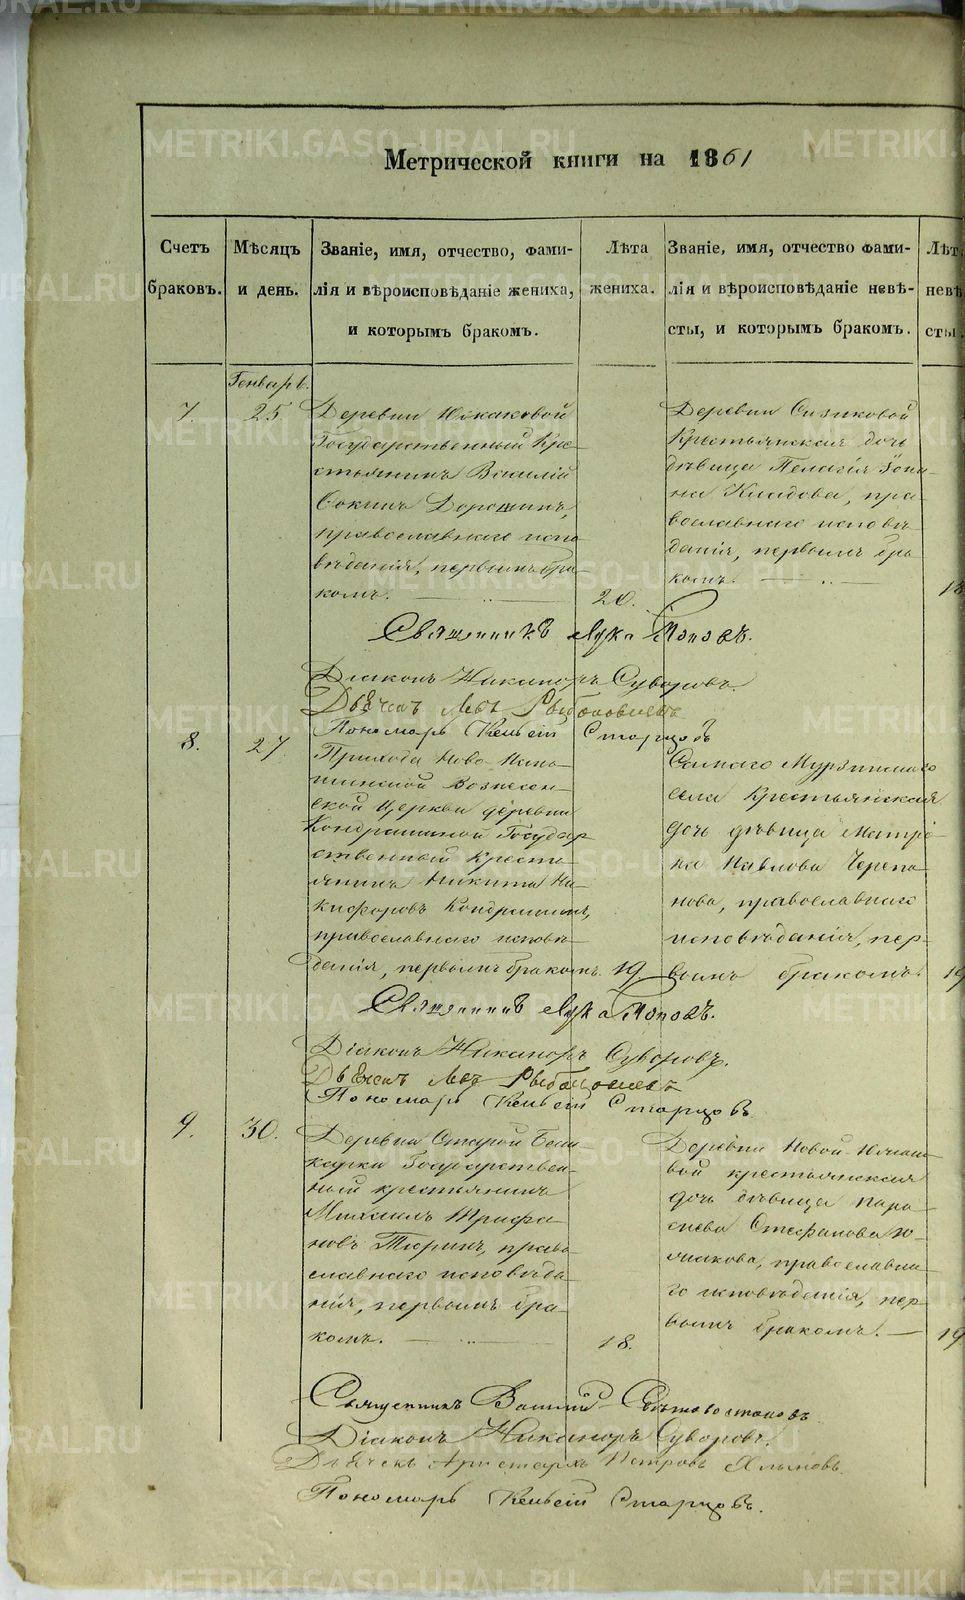 Метрической книги на 1861
Счетъ браковъ.
Мѣсяцъ и день.
Званіе, имя, отчество, фами-
лія и вѣроисповѣданіе жениха,
и которымъ бракомъ.
Лѣта
жениха.
Званіе, имя, отчество фами-
лія и вѣроисповѣданіе невѣ-
сты, и которымъ бракомъ.
Лѣт
невѣ
сты.
Генварь.
7.
25
Деревни Южаковой
Государственный Кре-
стьянинъ Василій
Дорошинъ,
православнаго испо-
вѣданія, первымъ бра-
комъ.
20.
Деревни Сизиковой
Крестьянская дочь
дѣвица Пелагія
на Кладова, пра-
вославнаго исповѣ-
данія, первымъ бра-
комъ.
18
Священникъ Лука Поповъ.
Діаконъ Никаноръ Суворовъ.
Дьячекъ Левъ
Пономарь Евгеній Старцовъ
8.
27
Прихода Ново-Паньшинской Вознесен-
ской Церкви деревни
Кондрашиной Государ-
ственный Кресть-
янинъ Никита Ни-
кифоровъ Кондрашинъ,
православнаго исповѣ-
данія, первымъ бракомъ.
19.
Самаго Мурзинскаго
села Крестьянская
дочь дѣвица Матрё-
на Павлова Черепа-
нова, православнаго
исповѣданія, пер-
вымъ бракомъ.
19
Священникъ Лука Поповъ.
Діаконъ Никаноръ Суворовъ.
Дьячекъ Левъ
Пономарь Евгеній Старцовъ
9.
30.
Деревни Старой Баш-
карки Государствен-
ный крестьянинъ
Михаилъ Трифа-
новъ Тюринъ, право-
славнаго исповѣда-
нія, первымъ бра-
комъ.
18.
Деревни Новой-
вой крестьянская
дочь дѣвица Пара-
скева Стефанова Ю-
жакова, православна-
го исповѣданія, пер-
вымъ бракомъ.
19
Священникъ Василій
Діаконъ Никаноръ Суворовъ.
Дьячекъ Аристархъ Петровъ Хлыновъ.
Пономарь Евгеній Старцовъ.
METRIKI.GASO-URAL.RU